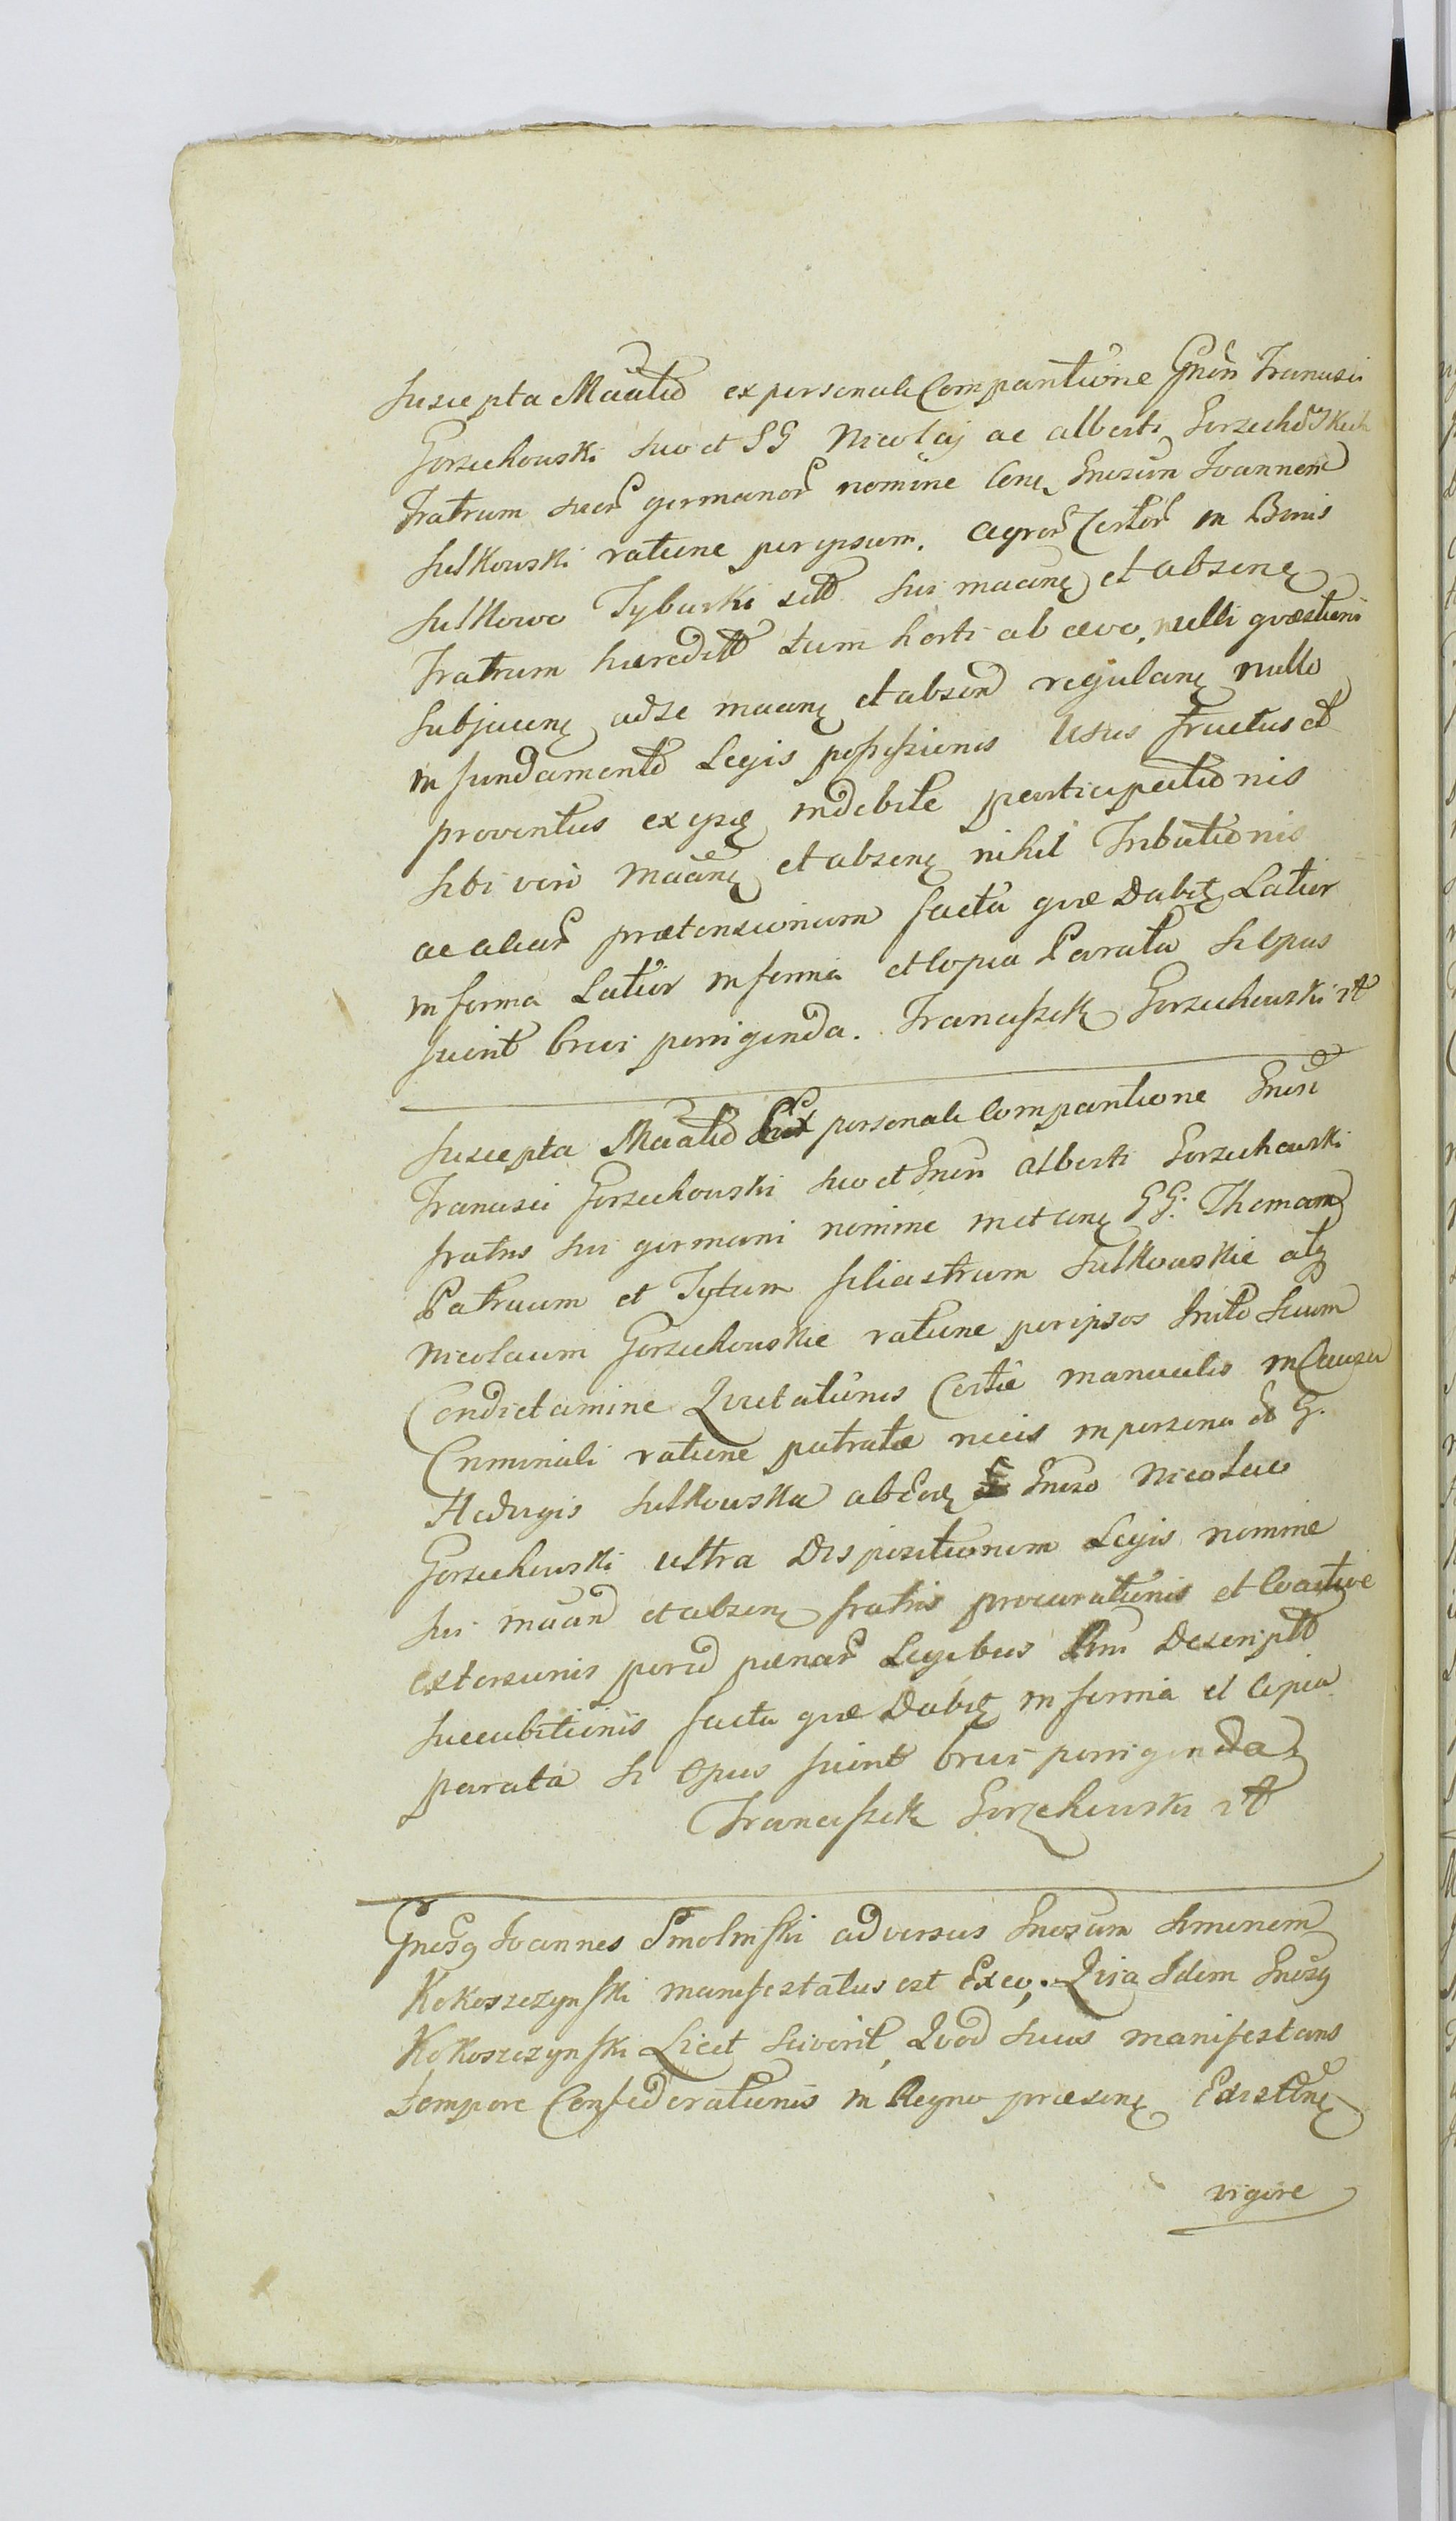 Suscepta Maãtio ex personali Compantione Gnoñ Francisci
Gorzechowski suo et GG Nicolaj ac alberti Gorzechowskich
Fratrum suor germanor nomine Conę Gnosum Joannem
Sulkowski ratione per ipsum. Agror Certor in Bonis
Sulkowo Tyburki sitt sui maanę et absenę
Fratrum hæreditt tum horti ab ævo, nulli qvæstioni
Subjacenę adse maanę et absend regulanę nullo
in fundamento Legis possessionis Usus fructus et
proventus ex ijsdę indebite participationis
sibi vero maanę et absenę nihil Tributionis
ac aliar prætensionum facta qvæ dabitę Latior
in forma Latior in forma et Copia Parata si Opus
fuerit brevi porrigenda. Franciszek Gorzechowski mp
Suscepta Maatio Ex personali Compantione Gnosi
Francisci Gorzechowski suo et Gnosi Alberti Gorzechowski
fratris sui germani nomine met conę GG. Thomam
Patruum et Tytum filiastrum Sulkowskie atq
Nicolaum Gorzechowskie ratione per ipsos Inito Suum
Condictamine Qvietationis Certæ manualis in Causa
Criminali ratione patratæ necis in persona G.
Hedvigis Sulkowska ab Eodę Gnoso Nicolao
Gorzechowski ultra Dispositionem Legis nomine
sui maand et absenę fratris procurationis et Coactive
extorsionis per id pænar Legibus Rni Descriptt
Succubitionis facta qvæ Dabitę in forma et Copia
parata si Opus fuerit brevi porrigenda
Franciszek Gorzechowski mp
Gnosq Joannes Smolinski adversus Gnosum Simonem
Kokoszczynski manifestatus est Exeo, Qvia Idem Gnosq
Kokoszczynski Licet sciverit, Qvod suus manifestans
tempore Confederationis in Regno præsenę Existenę
vigore